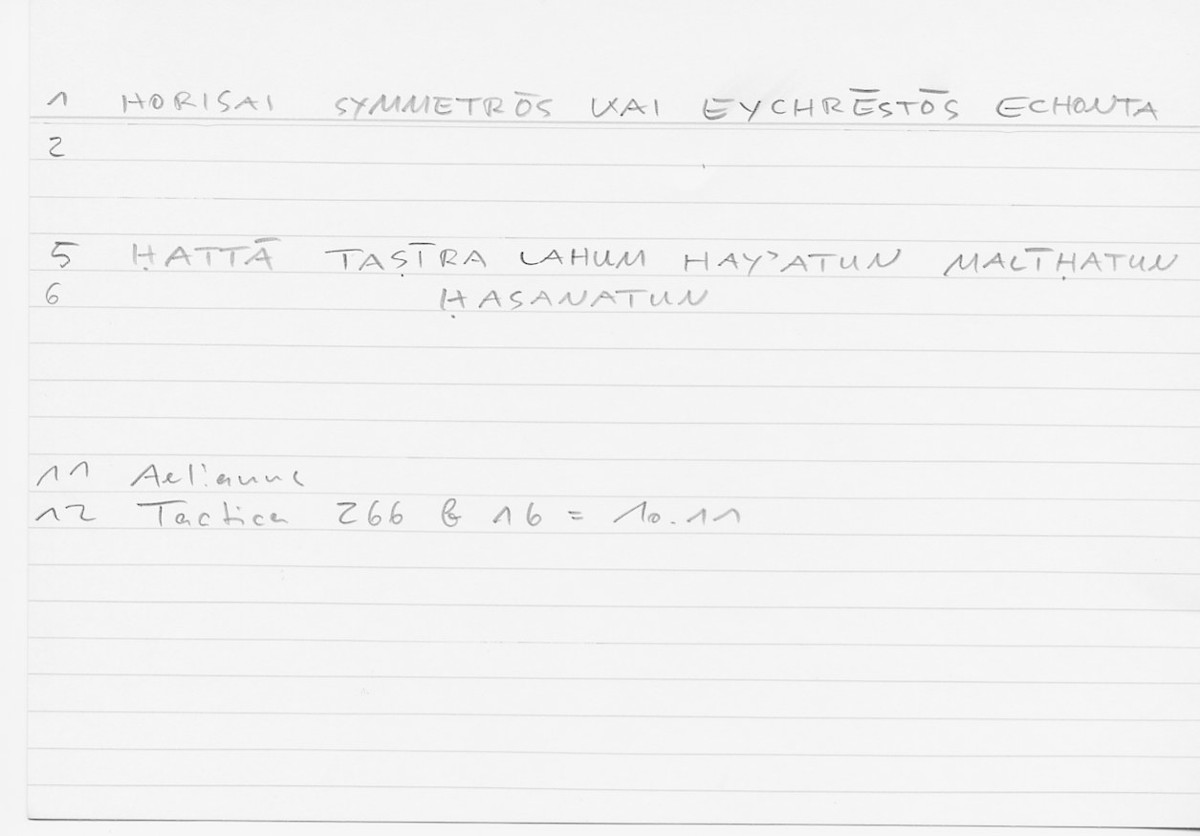 1 HORISAI SYMMETRŌS KAI EYCHRĒSTŌS ECHONTA
2
5 ḤATTĀ TAṢĪRA LAHUM HAY'ATUN MALĪḤATUN
6 ḤASANATUN
11 Aelianus
12 Tactica 266 b 16 = 10.11